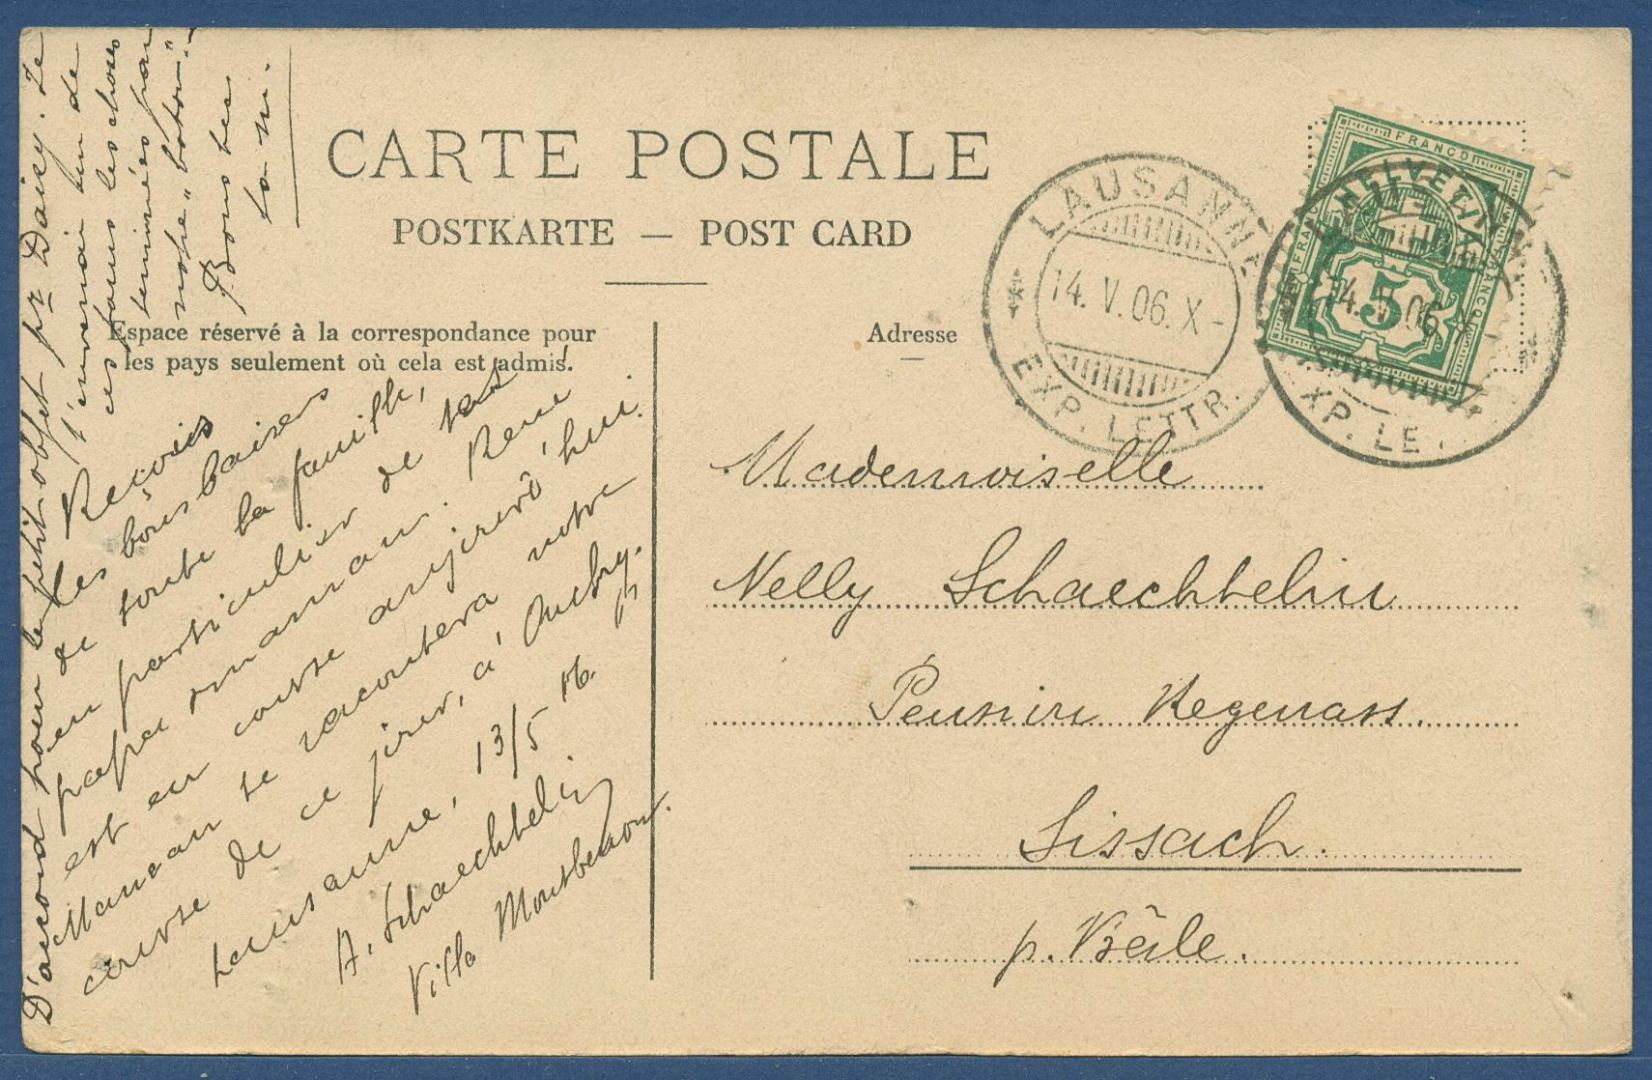 CARTE POSTALE
POSTKARTE — POST CARD
Espace réservé à la correspondance pour
les pays seulement où cela est admis.
Adresse
LAUSANNE
14. V. 06. X -
EXP. LETTR.
FRANCO
HELVETIA
5
14. V. 06
EXP. LE
Mademoiselle
Nelly Schaechtelin
Pension Regenass.
Sissach.
p. Bâle.
Reçois
les bons baisers
de toute la famille,
en particulier de tes
papa maman. René
est en course aujourd'hui.
Maman te racontera notre
course de ce jour, à Ouchy.
Lausanne, 13/5 06.
A. Schaechtelin
Villa Montbenon.
D'accord pour le petit objet pr Daisy. Le
j'enverrai
ces jours les choses
terminées par
notre
Bons
ta m.